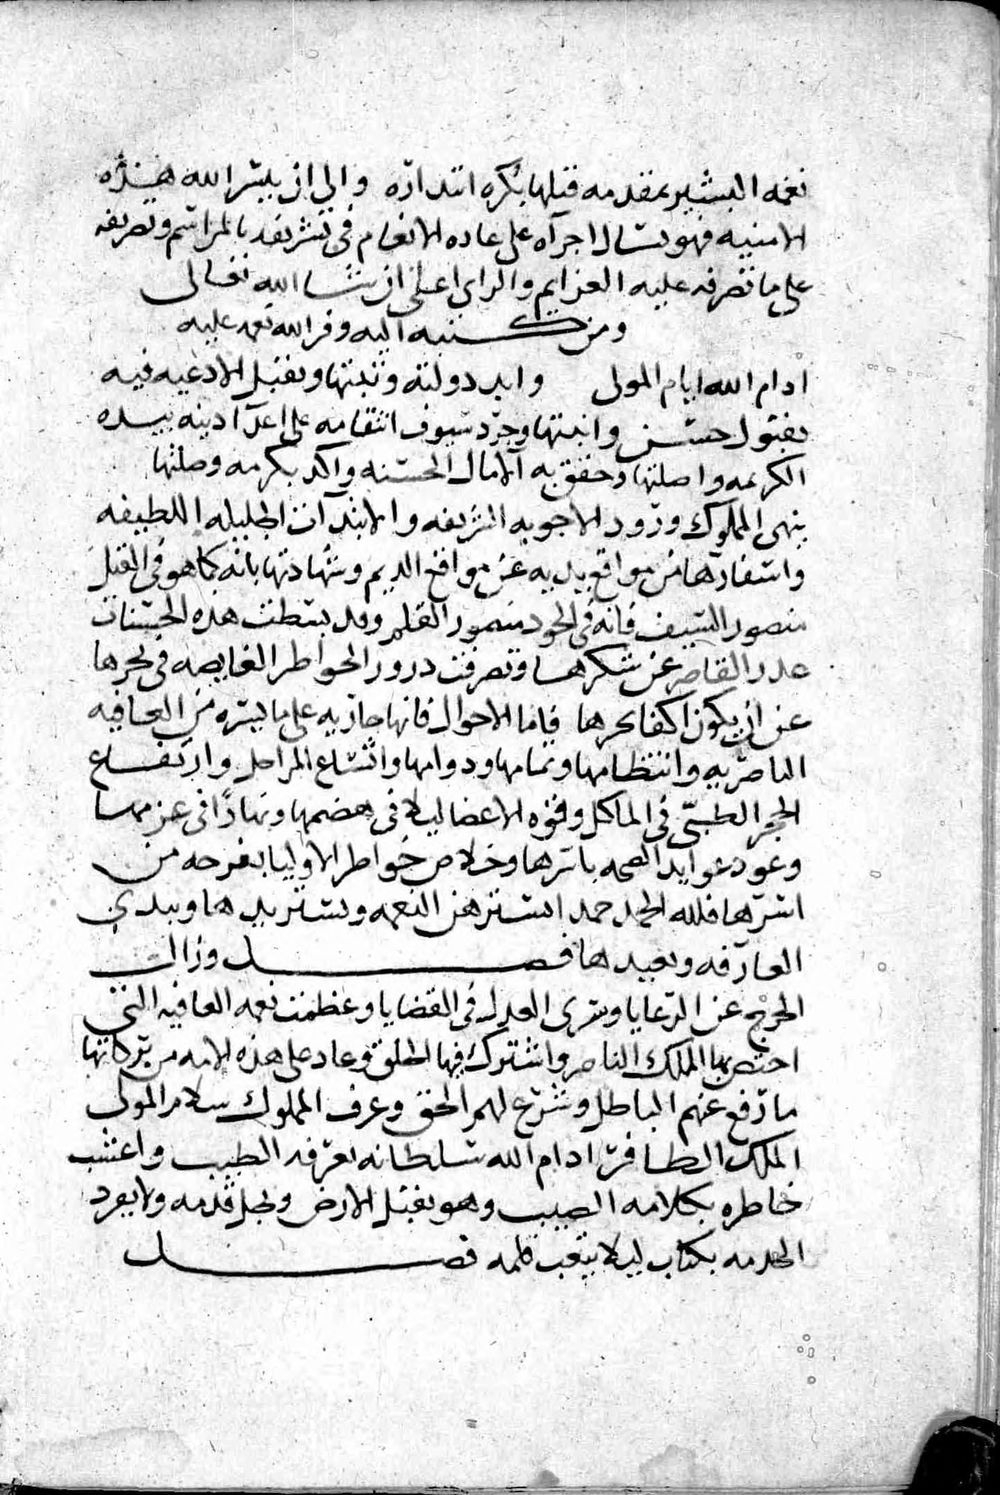 نغمه البشير بمقدمه قبلها بكره ابتداره والى ان ييسر الله هذه
الامنيه فهو يسال اجراه على عاده الانعام فى تشريفه بالمراسم وتصريفه
على ما تصرفه عليه العزايم والراى اعلى ان شا الله تعالى
ومن كتبه اليه وفر الله نعمه عليه
ادام الله ايام المولى وايد دولته وثبتها وتقبل الادعيه فيه
بقبول حسن وانبتها وجرد سيوف انتقامه على اعدآ دينه بيده
الكريمه واصلتها وحقق به الامال الحسنه واكد بكرمه وصلتها
ينهى المملوك ورود الاجوبه الشريفه والابتدآت الجليله اللطيفه
واسفارها من مواقع يديه عن مواقع الديم وشهادتها بانه كما هو فى القتل
منصور السيف فانه فى الجود منصور القلم وقد بسطت هذه الحسنات
عذر القاصر عن شكرها وتصرفت درور الخواطر الغايصه فى بحرها
عن ان يكون اكفا نحرها فاما الاحوال فانها جاريه على ما يسره من العافيه
الناصريه وانتظامها وتمامها ودوامها واتساع المراحل وارتفاع
الحجر الطبى فى الماكل وقوه الاعضا ليلا فى هضمها ونهارا فى عزمها
وعود عوايد الصحه باسرها وخلاص خواطر الاوليا بفرحه من
اسرها فلله الحمد حمدا يستزهن النعمه ويستزيدها ويبدى
العارفه ويعيدها فصل وزال
الحرج عن الرعايا وسرى العدل فى القضايا وعظمت نعمه العافيه التى
اختص بها الملك الناصر واشترك فيها الخلق وعاد على هذه الامه من بركاتها
ما رفع عنهم الباطل وشرع لهم الحق وعرف المملوك سلام المولى
الملك الظافر ادام الله سلطانه بعرفه الطيب واعشب
خاطره بكلامه الصيب وهو يقبل الارض ويجل قدمه ولا يفرد
الخدمه بكتاب ليلا يتعب قلمه فصل